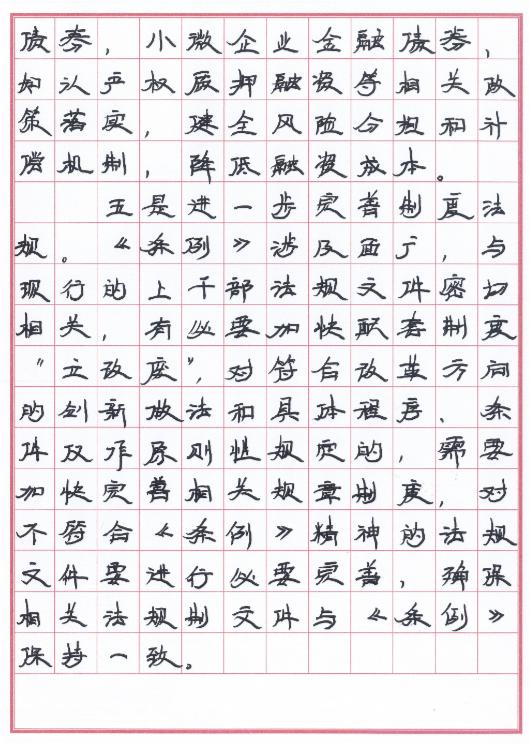 债券，小微企业金融债券，
知认产权质押融资等相关政
策落实，健全风险分担和补
偿机制，降低融资成本。
五是进一步完善制度法
规。《条例》涉及面广，与
现行的上千部法规文件密切
相关，有必要加快配套制度
“立改废”，对符合改革方向
的创新做法和具体程序、条
件仅作原则性规定的，需要
加快完善相关规章制度，对
不符合《条例》精神的法规
文件要进行必要完善，确保
相关法规制文件与《条例》
保持一致。